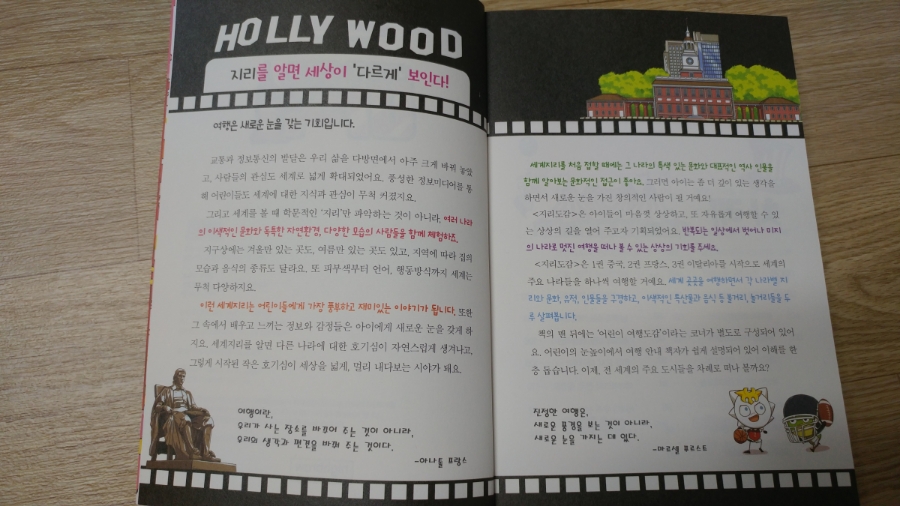 HOLLY WOOD
지리를 알면 세상이 '다르게' 보인다!
여행은 새로운 눈을 갖는 기회입니다.
교통과 정보통신의 발달은 우리 삶을 다방면에서 아주 크게 바꿔 놓았
고, 사람들의 관심도 세계로 넓게 확대되었어요. 풍성한 정보미디어를 통
해 어린이들도 세계에 대한 지식과 관심이 무척 커졌지요.
그리고 세계를 볼 때 학문적인 '지리'만 파악하는 것이 아니라, 여러 나라
의 이색적인 문화와 독특한 자연환경, 다양한 모습의 사람들을 함께 체험하죠.
지구상에는 겨울만 있는 곳도, 여름만 있는 곳도 있고, 지역에 따라 집의
모습과 음식의 종류도 달라요. 또 피부색부터 언어, 행동방식까지 세계는
무척 다양하지요.
이런 세계지리는 어린이들에게 가장 풍부하고 재미있는 이야기가 됩니다. 또한
그 속에서 배우고 느끼는 정보와 감정들은 아이에게 새로운 눈을 갖게 하
지요. 세계지리를 알면 다른 나라에 대한 호기심이 자연스럽게 생겨나고,
그렇게 시작된 작은 호기심이 세상을 넓게, 멀리 내다보는 시야가 돼요.
여행이란,
우리가 사는 장소를 바꾸어 주는 것이 아니라,
우리의 생각과 편견을 바꿔 주는 것이다.
-아나톨 프랑스
세계지리를 처음 접할 때에는 그 나라의 특색 있는 문화와 대표적인 역사 인물을
함께 알아보는 문화적인 접근이 좋아요. 그러면 아이는 좀 더 깊이 있는 생각을
하면서 새로운 눈을 가진 창의적인 사람이 될 거예요!
<지리도감>은 아이들이 마음껏 상상하고, 또 자유롭게 여행할 수 있
는 상상의 길을 열어 주고자 기획되었어요. 반복되는 일상에서 벗어나 미지
의 나라로 멋진 여행을 떠나 볼 수 있는 상상의 기회를 주세요.
<지리도감>은 1권 중국, 2권 프랑스, 3권 이탈리아를 시작으로 세계의
주요 나라들을 하나씩 여행할 거예요. 세계 곳곳을 여행하면서 각 나라별 지
리와 문화, 유적, 인물들을 구경하고, 이색적인 특산물과 음식 등 볼거리, 놀거리들을 두
루 살펴봅니다.
책의 맨 뒤에는 '어린이 여행도감'이라는 코너가 별도로 구성되어 있어
요. 어린이의 눈높이에서 여행 안내 책자가 쉽게 설명되어 있어 이해를 한
층 돕습니다. 이제, 전 세계의 주요 도시들을 차례로 떠나 볼까요?
진정한 여행은,
새로운 풍경을 보는 것이 아니라,
새로운 눈을 가지는 데 있다.
-마르셀 프루스트